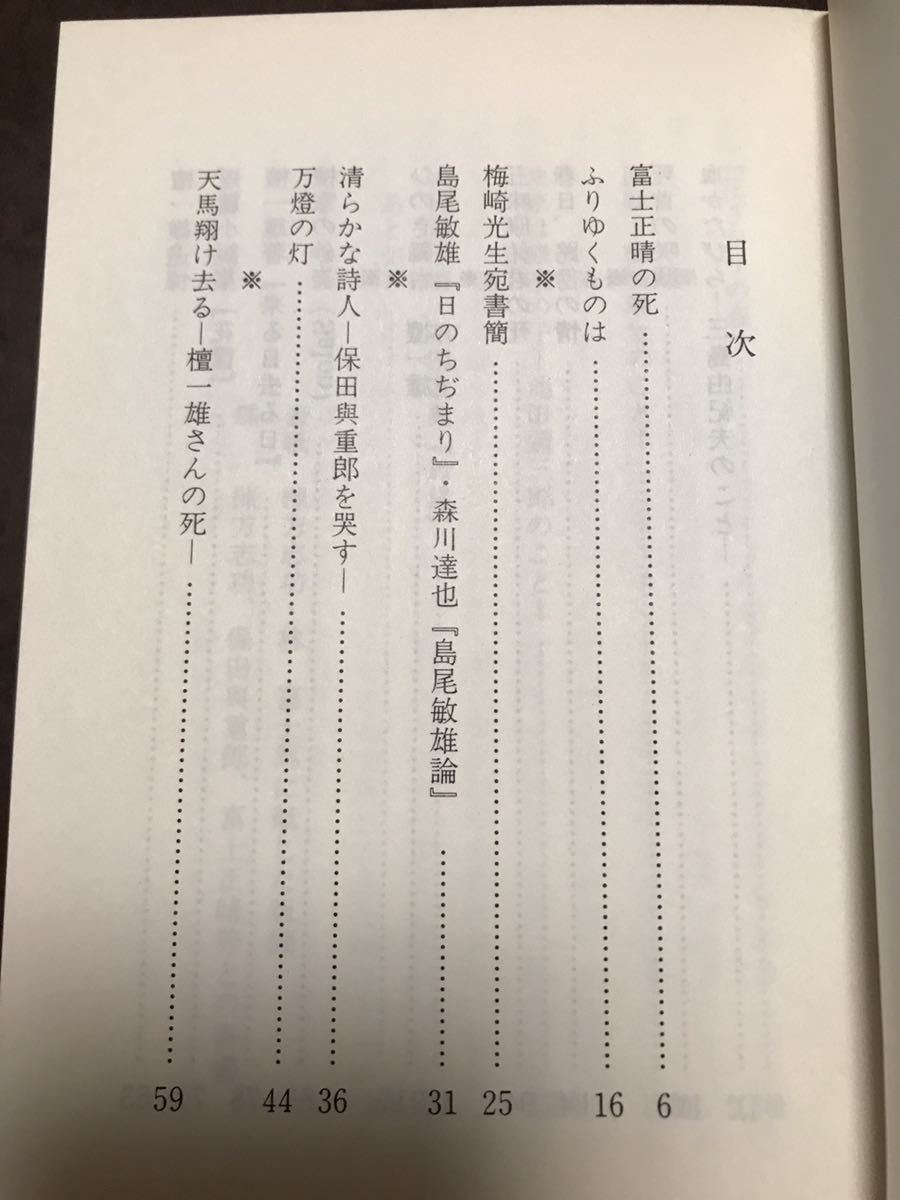 目次
富士正晴の死……………………6
ふりゆくものは……………………16
※
梅崎光生宛書簡……………………25
島尾敏雄『日のちぢまり』・森川達也『島尾敏雄論』……………………31
※
清らかな詩人―保田與重郎を哭す―……………………36
万燈の灯……………………44
※
天馬翔け去る―檀一雄さんの死―……………………59